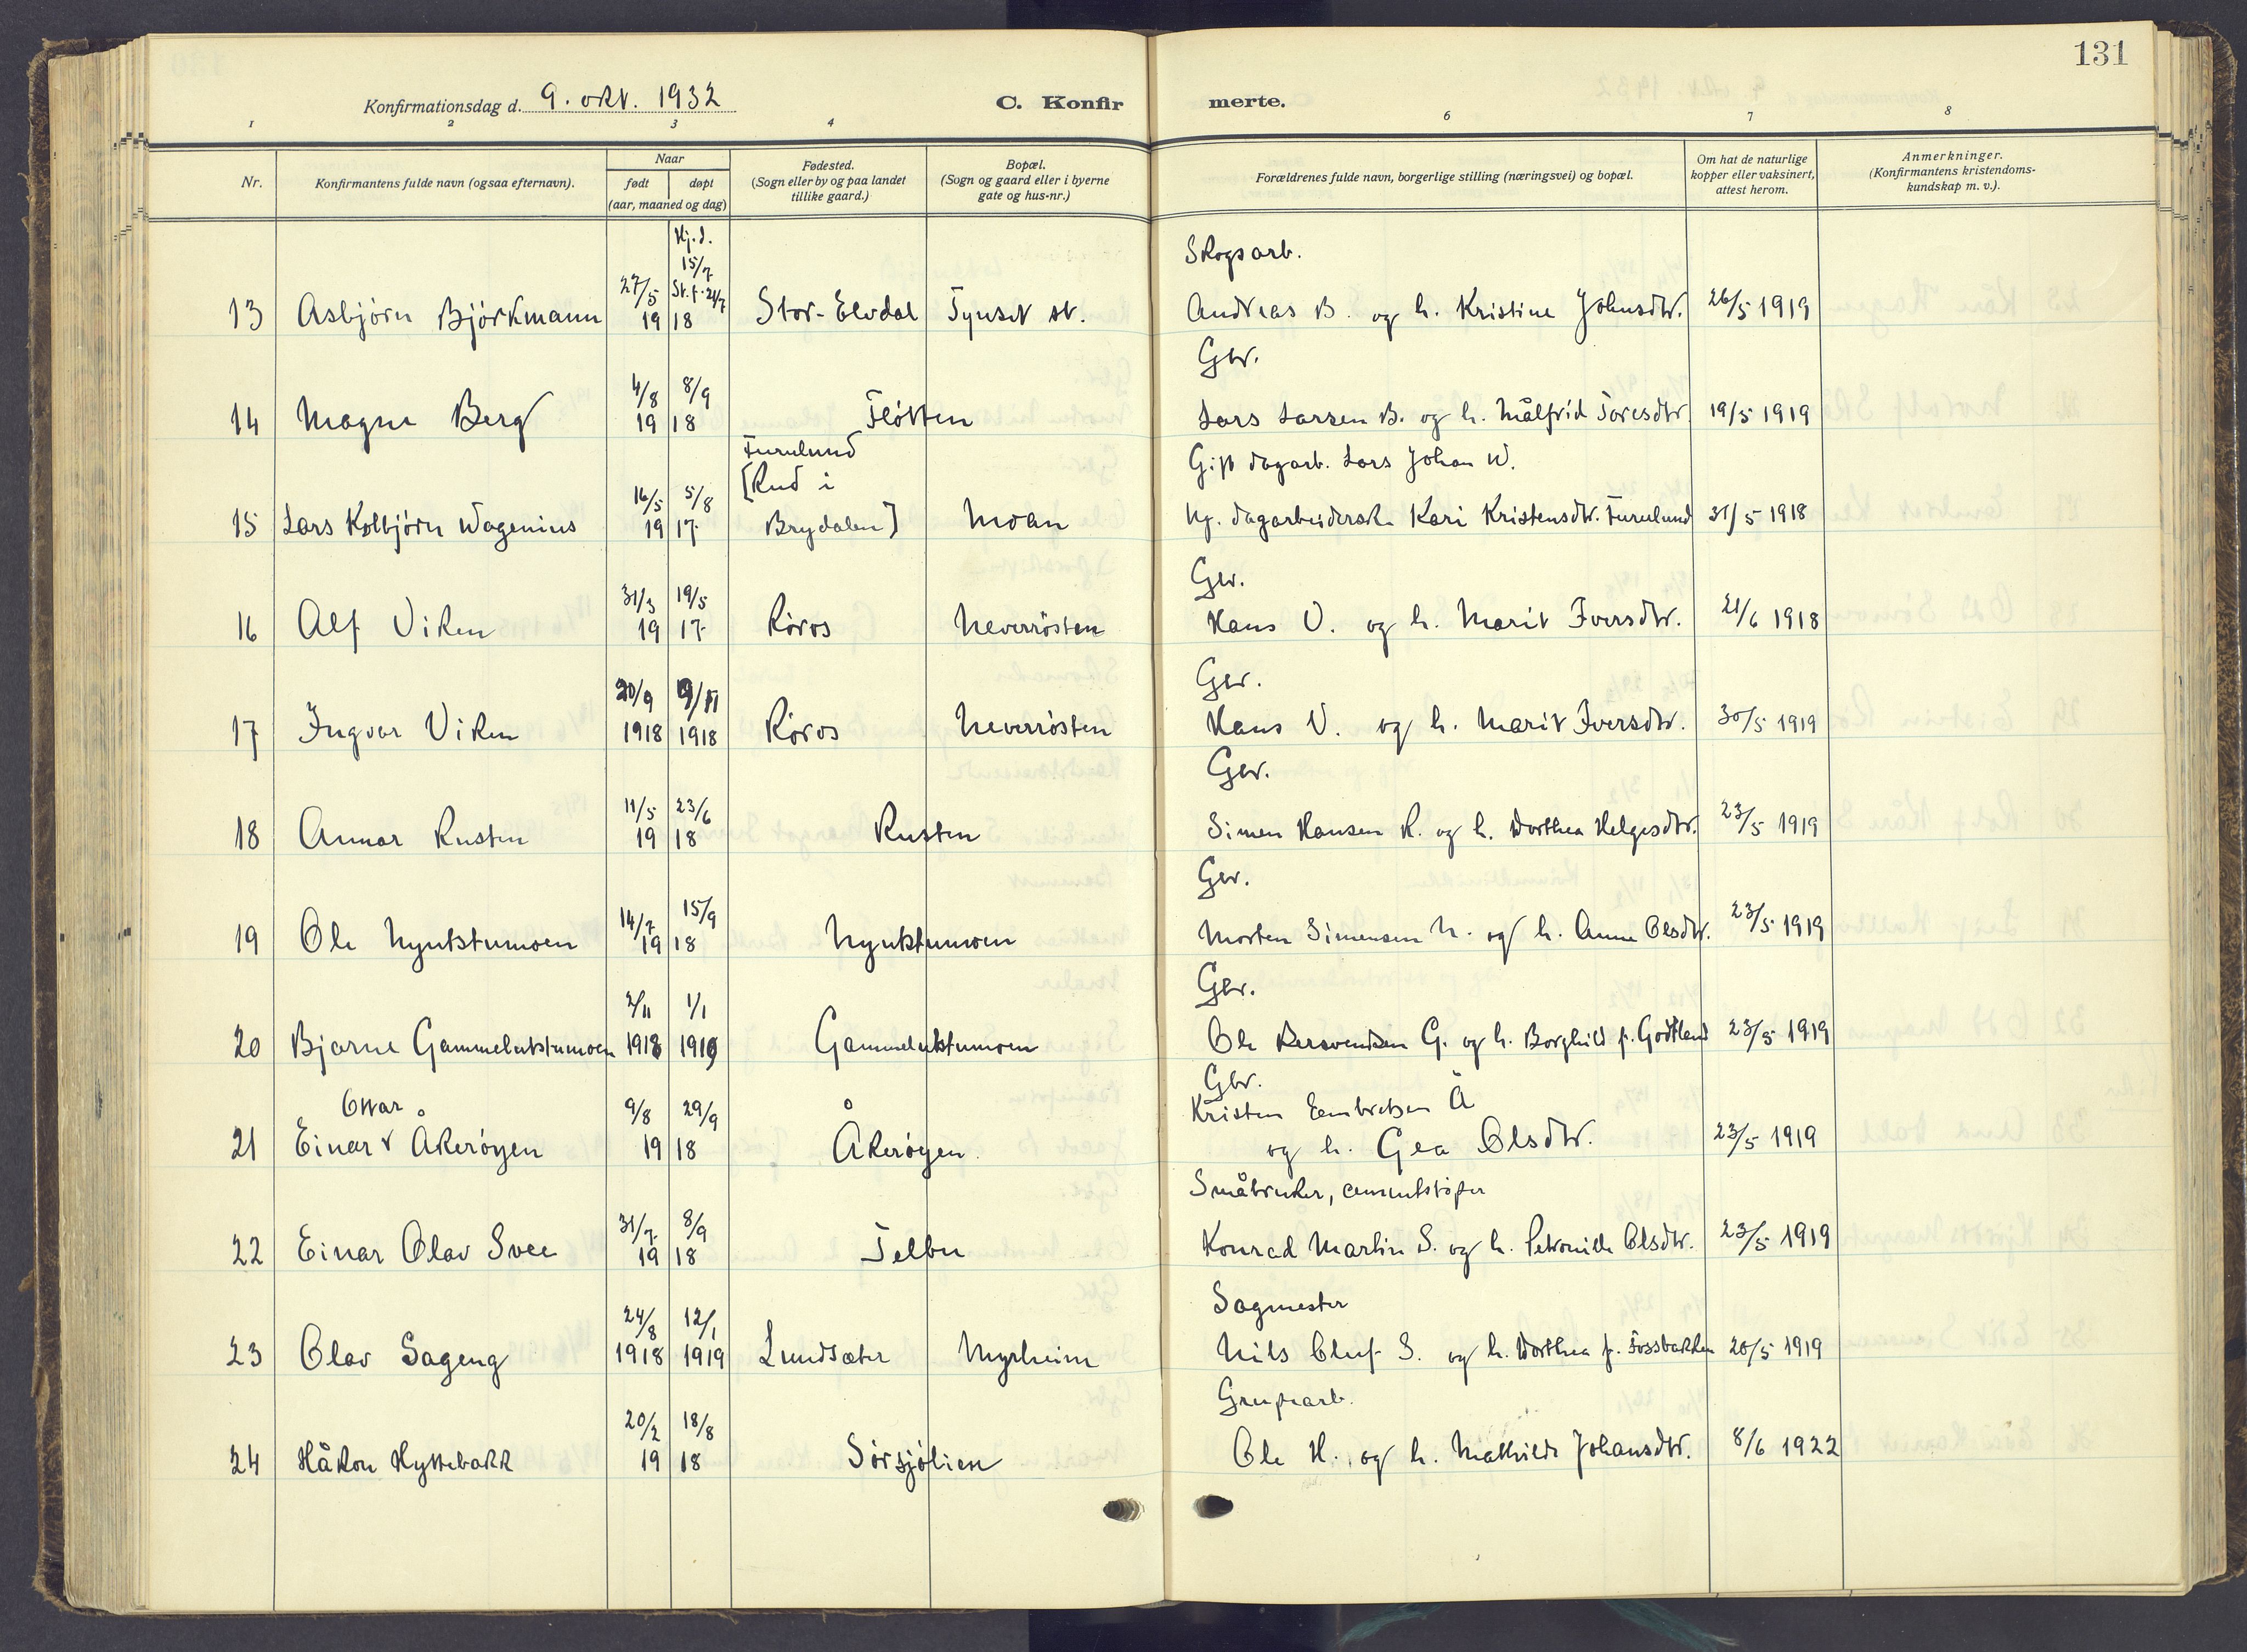 131
Konfirmationsdag d. 9. okt. 1932
C. Konfirmerte.
1 2 3 4 6 7 8
Nr.
Konfirmantens fulde navn (ogsaa efternavn).
Naar
født døpt
(aar, maaned og dag)
Fødested.
(Sogn eller by og paa landet
tillike gaard.)
Bopæl.
(Sogn og gaard eller i byerne
gate og hus-nr.)
Forældrenes fulde navn, borgerlige stilling (næringsvei) og bopæl.
Om hat de naturlige
kopper eller vaksinert,
attest herom.
Anmerkninger.
(Konfirmantens kristendoms-
kundskap m. v.).
Hj. d.
15/7 Skogsarb.
27/5 St. f. 21/7
13 Asbjørn Bjørkmann 19 18 Stor-Elvdal Tynset st. Andreas B. og h. Kristine Johnsdtr. 26/5 1919
Gbr.
4/8 8/9
14 Magne Berg 19 18 Fløtten Lars Larsen B. og h. Målfrid Toresdtr. 19/5 1919
Furulund Gift dagarb. Lars Johan W.
16/5 5/8 [Rud i
15 Lars Kolbjørn Wagenius 19 17 Brydalen] Moan Ug. dagarbeiderske Kari Kristensdtr. Furulund 31/5 1918
Gbr.
31/3 19/5
16 Alf Viken 19 17 Røros Neverrösten Hans V. og h. Marit Iversdtr. 21/6 1918
Gbr.
20/9 9/11
17 Ingvar Viken 1918 1918 Røros Neverrösten Hans V. og h. Marit Iversdtr. 30/5 1919
Gbr.
11/5 23/6
18 Annar Rusten 19 18 Rusten Simen Hansen R. og h. Dorthea Helgesdtr. 23/5 1919
Gbr.
14/7 15/9
19 Ole Nyutstumoen 19 18 Nyutstumoen Morten Simensen N. og h. Anne Olsdtr. 23/5 1919
Gbr.
2/11 1/1
20 Bjarne Gammelutstumoen 1918 1919 Gammelutstumoen Ole Bersvendsen G. og h. Borghild f. Godtland 23/5 1919
Gbr.
Ottar 9/8 29/9 Kristen Embretsen Å
21 Einar v Åkerøyen 19 18 Åkerøyen og h. Gea Olsdtr. 23/5 1919
Småbruker, cementstøper
31/7 8/9
22 Einar Olav Svee 19 18 Telbu Konrad Martin S. og h. Petronille Olsdtr. 23/5 1919
Sagmester
24/8 12/1
23 Olav Sageng 1918 1919 Lundsæter Myrheim Nils Oluf S. og h. Dorthea f. Fossbakken 20/5 1919
Grupearb.
20/2 18/8
24 Håkon Hyttebakk 19 18 Sørsjølien Ole H. og h. Mathilde Johansdtr. 8/6 1922